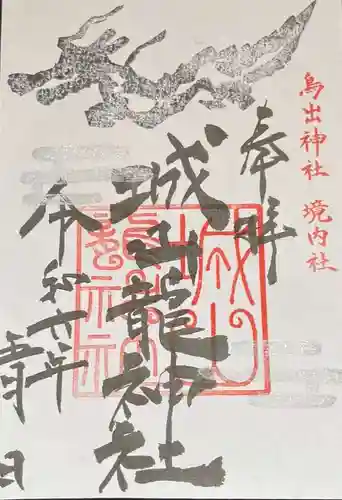 鳥出神社 境内社
奉拝
城山龍神社
令和六年
日